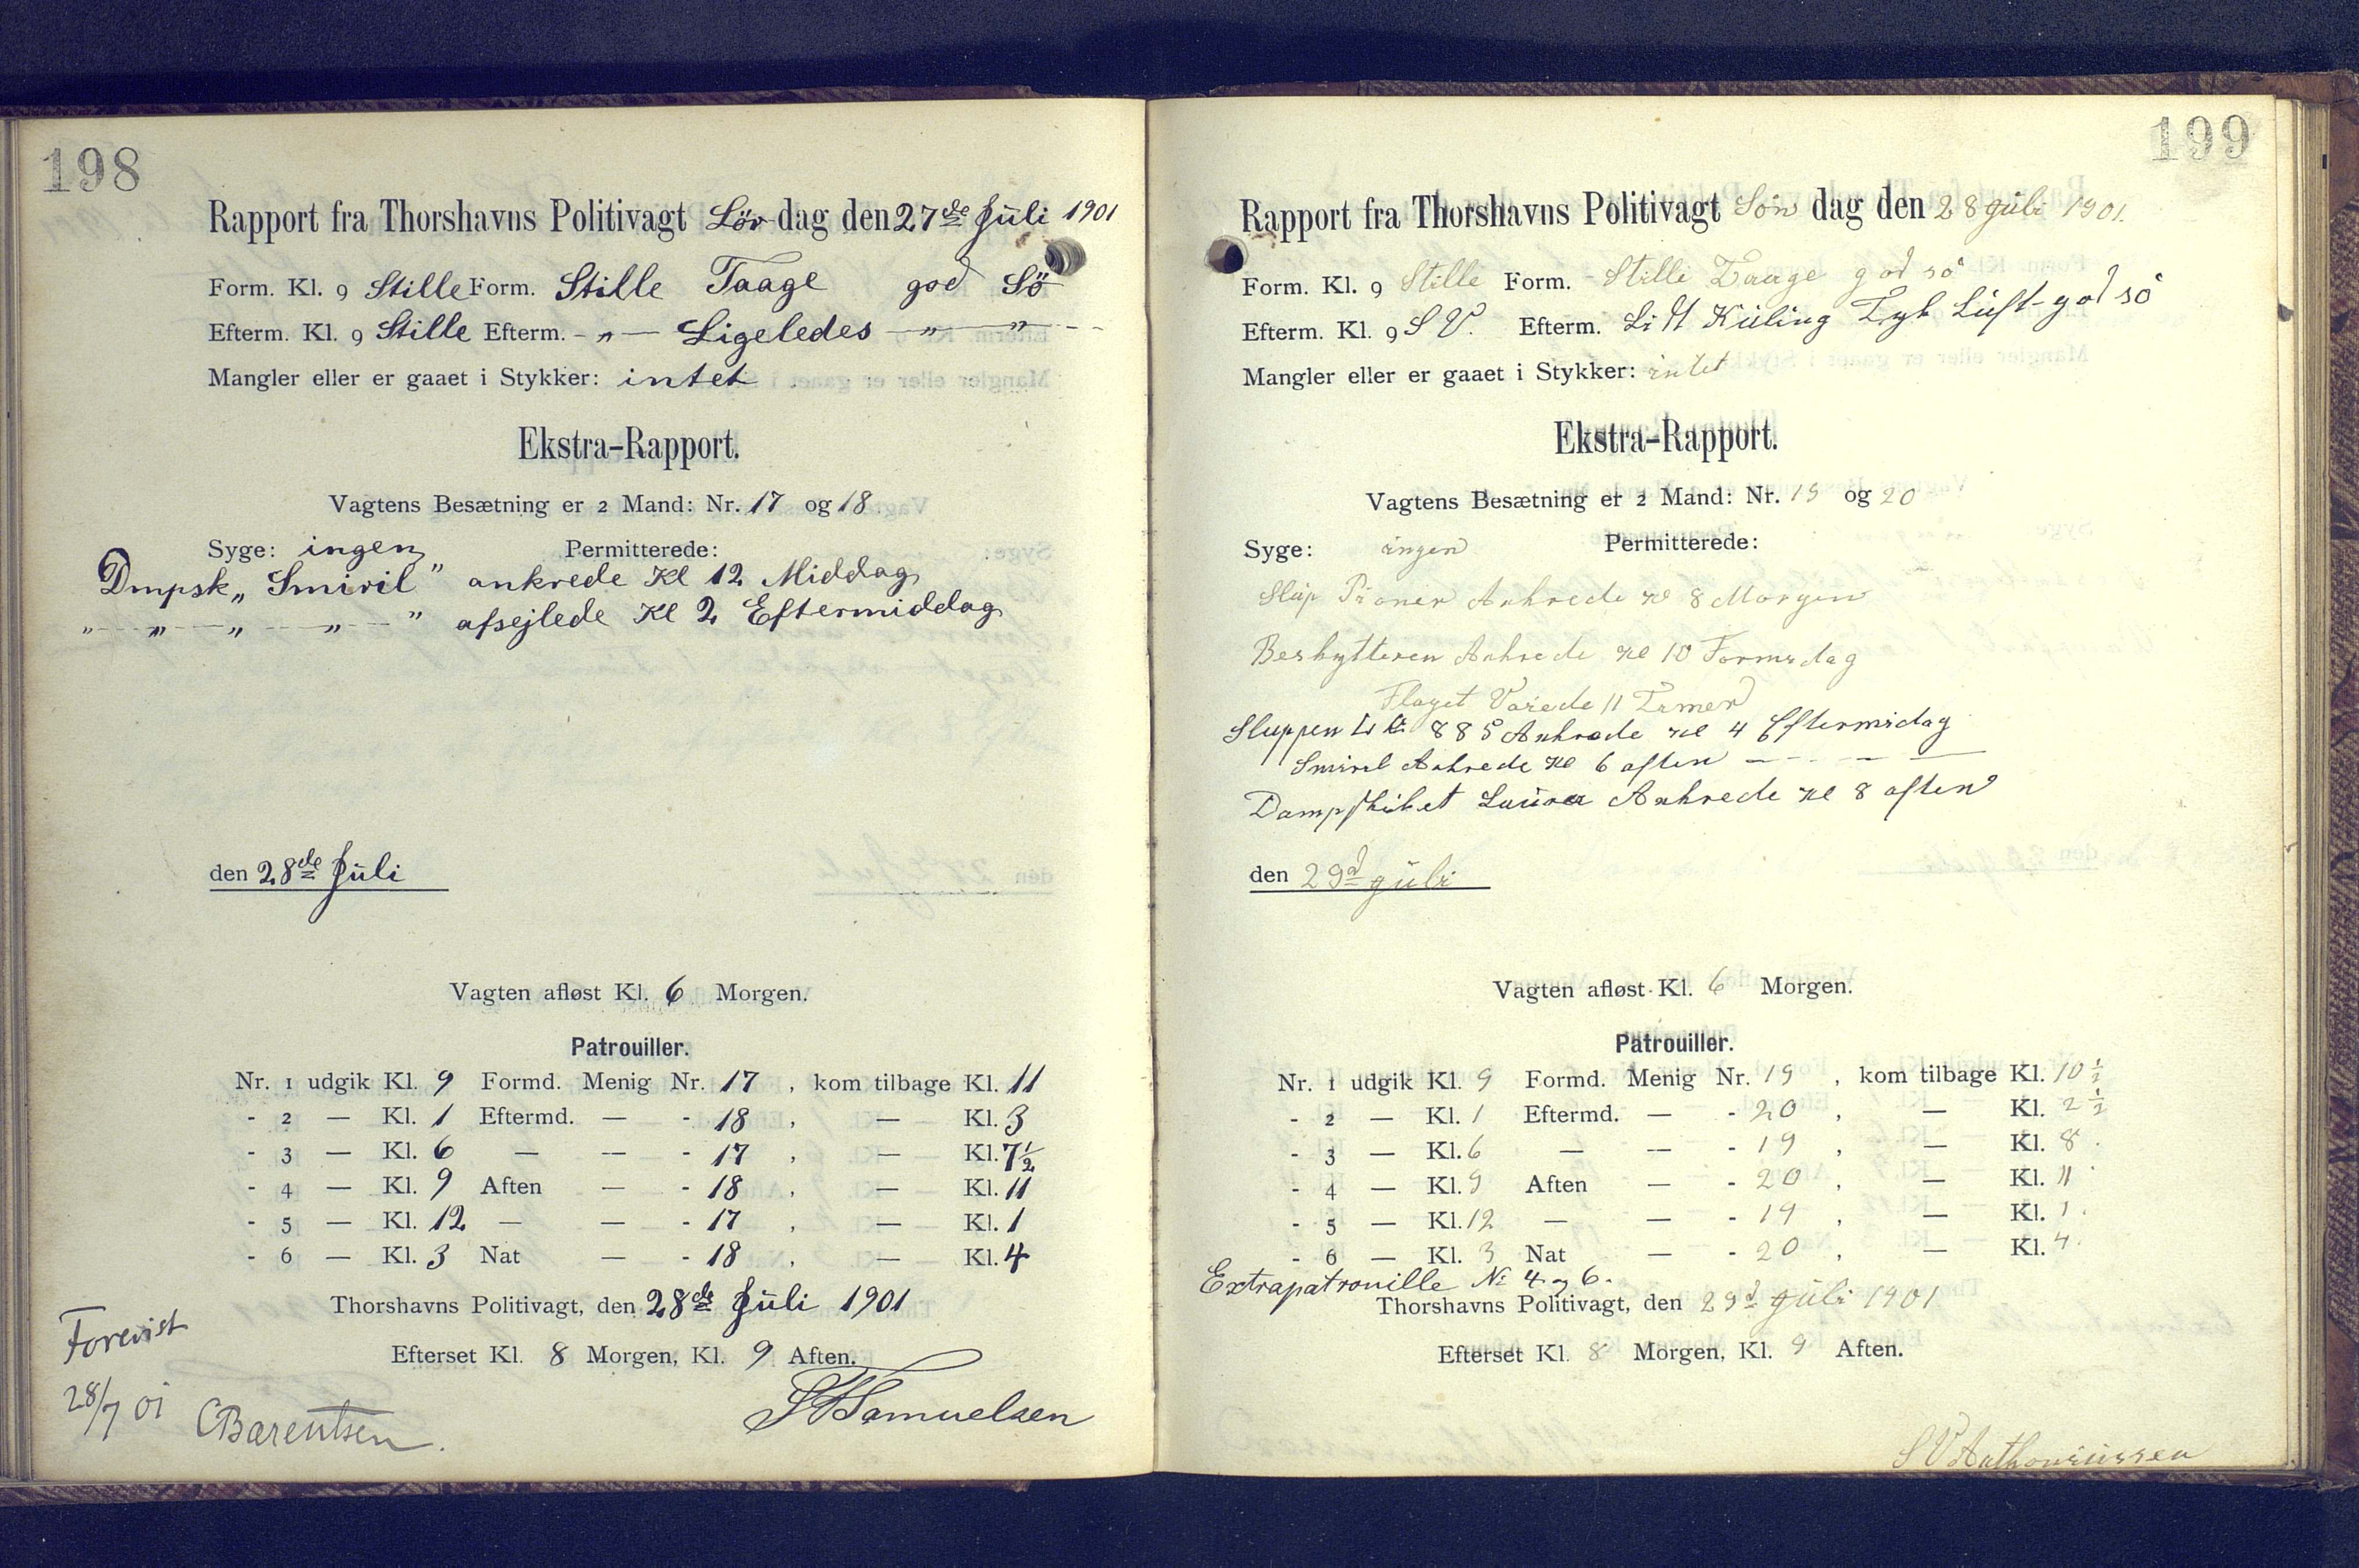 198
Rapport fra Thorshavns Politivagt Lör dag den 27de Juli 1901
Form. Kl. 9 Stille Form. Stille Taage god Sö
Efterm. Kl. 9 Stille Efterm. - „ — Ligeledes — „ — „ - -
Mangler eller er gaaet i Stykker: intet
Ekstra-Rapport.
Vagtens Besætning er 2 Mand: Nr. 17 og 18
Syge: ingen Permitterede:
Dmpsk „Smiril" ankrede Kl 12 Middag
„ — „ — „ — „ — " afsejlede Kl 2 Eftermiddag
den 28de Juli
Vagten afløst Kl. 6 Morgen.
Patrouiller.
Nr. 1 udgik Kl. 9 Formd. Menig Nr. 17 , kom tilbage Kl. 11
- 2 — Kl. 1 Eftermd. — - 18 , — Kl. 3
- 3 — Kl. 6 — — - 17 , — Kl. 7½
- 4 — Kl. 9 Aften — - 18 , — Kl. 11
- 5 — Kl. 12 — — - 17 , — Kl. 1
- 6 — Kl. 3 Nat — - 18 , — Kl. 4
Thorshavns Politivagt, den 28de Juli 1901
Efterset Kl. 8 Morgen, Kl. 9 Aften.
Samuelsen
Forevist
28/7 01 CBarentsen.
199
Rapport fra Thorshavns Politivagt Sön dag den 28 juli 1901.
Form. Kl. 9 Stille Form. - Stille Taage god sö
Efterm. Kl. 9 SV. Efterm. Lidt Kuling Tyk Luft god sö
Mangler eller er gaaet i Stykker: intet
Ekstra-Rapport.
Vagtens Besætning er 2 Mand: Nr. 19 og 20
Syge: ingen Permitterede:
Slup Pioner Ankrede Kl 8 Morgen
Beskytteren Ankrede Kl 10 Formidag
Flaget Varede 11 Timer
Sluppen 885 Ankrede Kl 4 Eftermidag
Smiril Ankrede Kl 6 aften — - - — —
Dampskibet Laura Ankrede Kl 8 aften
den 29d juli
Vagten afløst Kl. 6 Morgen.
Patrouiller.
Nr. 1 udgik Kl. 9 Formd. Menig Nr. 19 , kom tilbage Kl. 10½
- 2 — Kl. 1 Eftermd. — - 20 , — Kl. 2½
- 3 — Kl. 6 — — - 19 , — Kl. 8
- 4 — Kl. 9 Aften — - 20 , — Kl. 11
- 5 — Kl. 12 — — - 19 , — Kl. 1
- 6 — Kl. 3 Nat — - 20 , — Kl. 4
Extrapatrouille No 4 og 6.
Thorshavns Politivagt, den 29d juli 1901
Efterset Kl. 8 Morgen, Kl. 9 Aften.
SVAnthoniussen